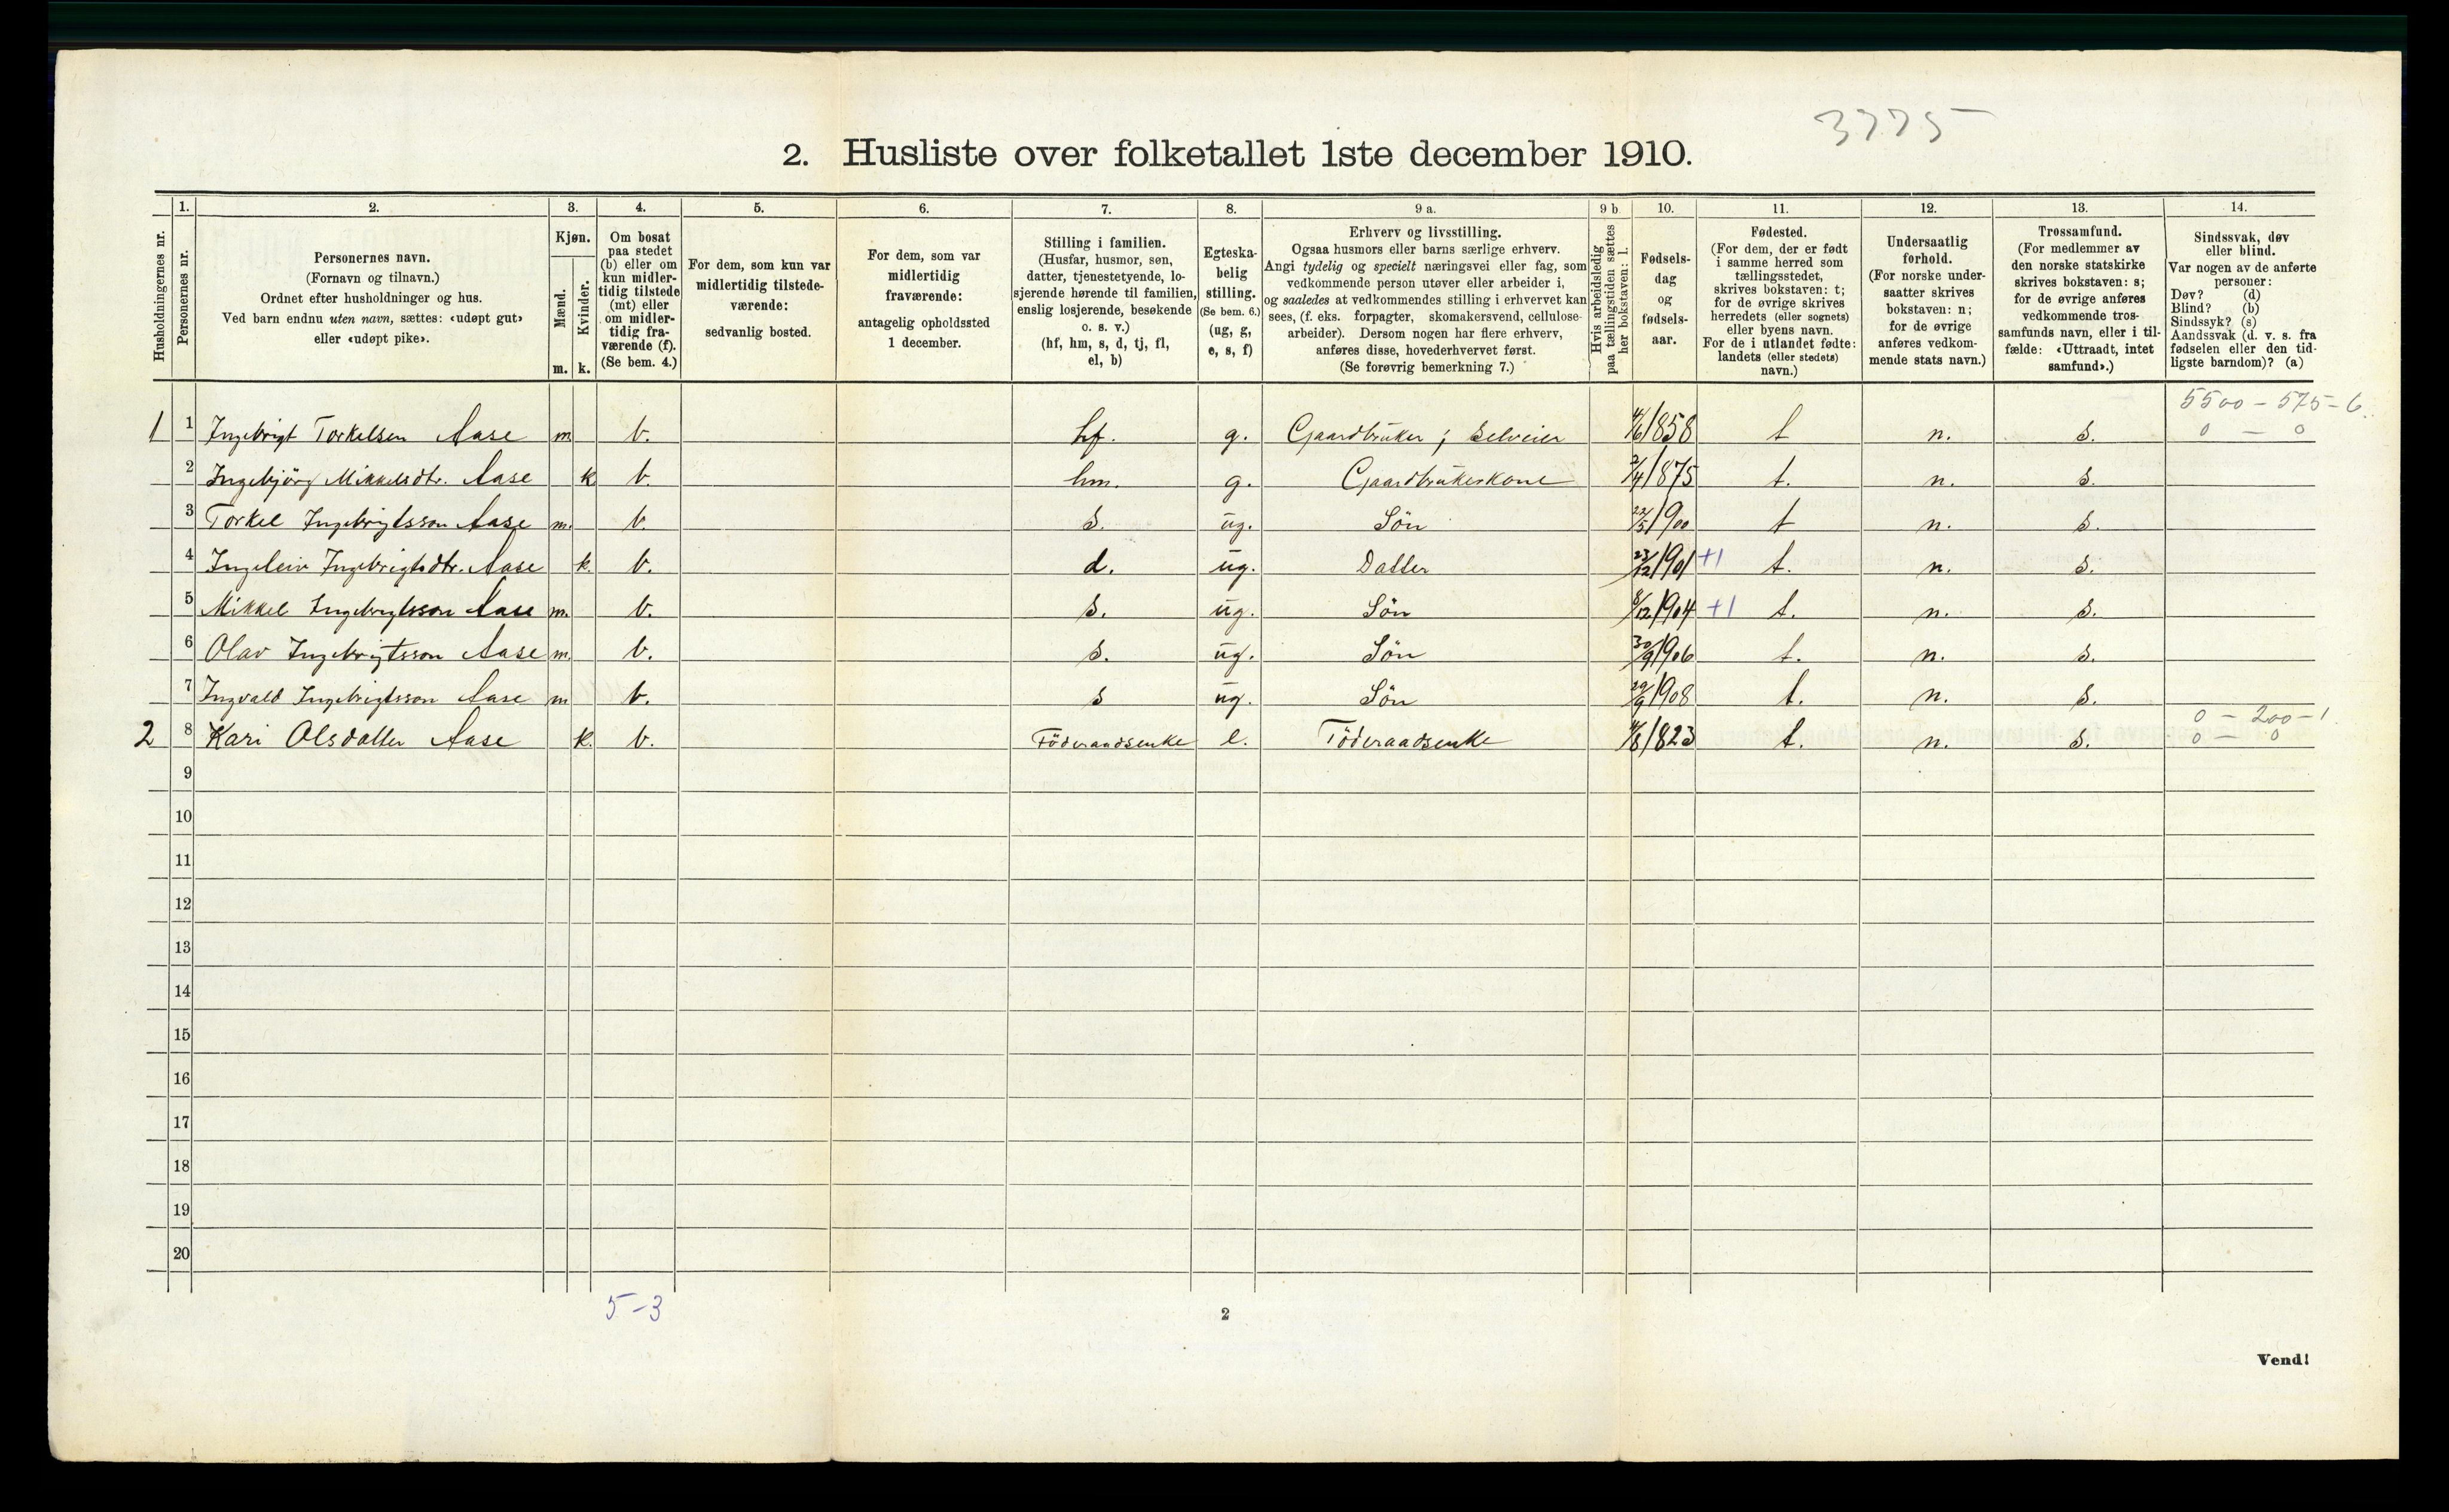 3775
2. Husliste over folketallet 1ste december 1910.
Husholdningernes nr.
1.
Personernes nr.
2.
Personernes navn.
(Fornavn og tilnavn.)
Ordnet efter husholdninger og hus.
Ved barn endnu uten navn, sættes: «udøpt gut»
eller «udøpt pike».
3.
Kjøn.
Mænd.
Kvinder.
m. k.
4.
Om bosat
paa stedet
(b) eller om
kun midler-
tidig tilstede
(mt) eller
om midler-
tidig fra-
værende (f).
(Se bem. 4.)
5.
For dem, som kun var
midlertidig tilstede-
værende:
sedvanlig bosted.
6.
For dem, som var
midlertidig
fraværende:
antagelig opholdssted
1 december.
7.
Stilling i familien.
(Husfar, husmor, søn,
datter, tjenestetyende, lo-
sjerende hørende til familien,
enslig losjerende, besøkende
o. s. v.)
(hf, hm, s, d, tj, fl,
el, b)
8.
Egteska-
belig
stilling.
(Se bem. 6.)
(ug, g,
e, s, f)
9 a.
Erhverv og livsstilling.
Ogsaa husmors eller barns særlige erhverv.
Angi tydelig og specielt næringsvei eller fag, som
vedkommende person utøver eller arbeider i,
og saaledes at vedkommendes stilling i erhvervet kan
sees, (f. eks. forpagter, skomakersvend, cellulose-
arbeider). Dersom nogen har flere erhverv,
anføres disse, hovederhvervet først.
(Se forøvrig bemerkning 7.)
9 b.
Hvis arbeidsledig
paa tællingstiden sættes
her bokstaven: l.
10.
Fødsels-
dag
og
fødsels-
aar.
11.
Fødested.
(For dem, der er født
i samme herred som
tællingsstedet,
skrives bokstaven: t;
for de øvrige skrives
herredets (eller sognets)
eller byens navn.
For de i utlandet fødte:
landets (eller stedets)
navn.)
12.
Undersaatlig
forhold.
(For norske under-
saatter skrives
bokstaven: n;
for de øvrige
anføres vedkom-
mende stats navn.)
13.
Trossamfund.
(For medlemmer av
den norske statskirke
skrives bokstaven: s;
for de øvrige anføres
vedkommende tros-
samfunds navn, eller i til-
fælde: «Uttraadt, intet
samfund».)
14.
Sindssvak, døv
eller blind.
Var nogen av de anførte
personer:
Døv? (d)
Blind? (b)
Sindssyk? (s)
Aandssvak (d. v. s. fra
fødselen eller den tid-
ligste barndom)? (a)
5500 – 575 – 6.
1 1 Ingebrigt Torkelsen Aase m b. hf. g. Gaardbruker; Selveier 4/6 1858 t n. s. 0 – 0
2 Ingebjörg Mikkelsdtr. Aase k b. hm. g. Gaardbrukerkone 2/4 1875 t. n. s.
3 Torkel Ingebrigtsson Aase m. b. s. ug. Sön 22/5 1900 t n. s.
4 Ingeleiv Ingebrigtsdtr. Aase k. b. d. ug. Datter 23/12 1901 +1 t. n. s.
5 Mikkel Ingebrigtsson Aase m. b. s. ug. Sön 8/12 1904 +1 t. n. s.
6 Olav Ingebrigtsson Aase m. b. s. ug. Sön 30/9 1906 t. n. s.
7 Ingvald Ingebrigtsson Aase m b. s ug. Sön 29/9 1908 t. n. s.
0 – 200 – 1.
2 8 Kari Olsdatter Aase k. b. Föderaadsenke e. Föderaadsenke 1823 t. n. s. 0 – 0
9
10
11
12
13
14
15
16
17
18
19
20
5–3
2
Vend!